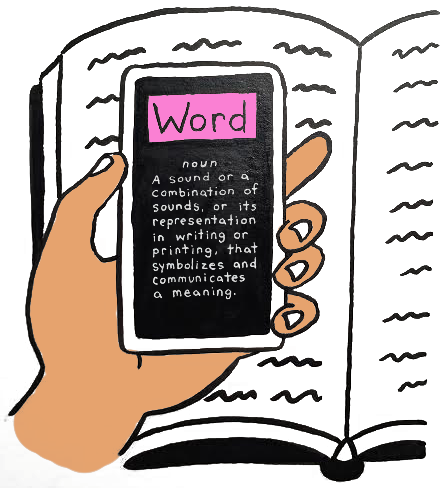 Word
noun
A sound or a
combination of
sounds, or its
representation
in writing or
printing, that
symbolizes and
communicates
a meaning.